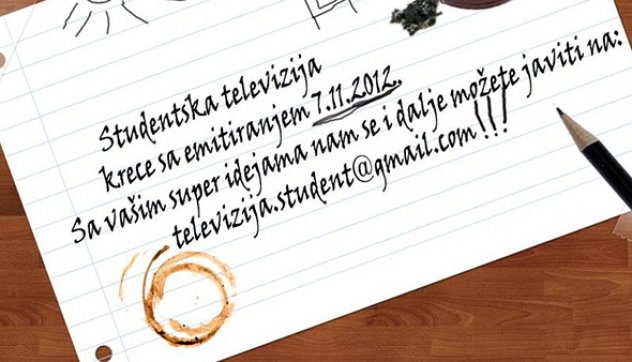 Studentska televizija
krece sa emitiranjem 7.11.2012.
Sa vašim super idejama nam se i dalje možete javiti na:
televizija.student@gmail.com !!!